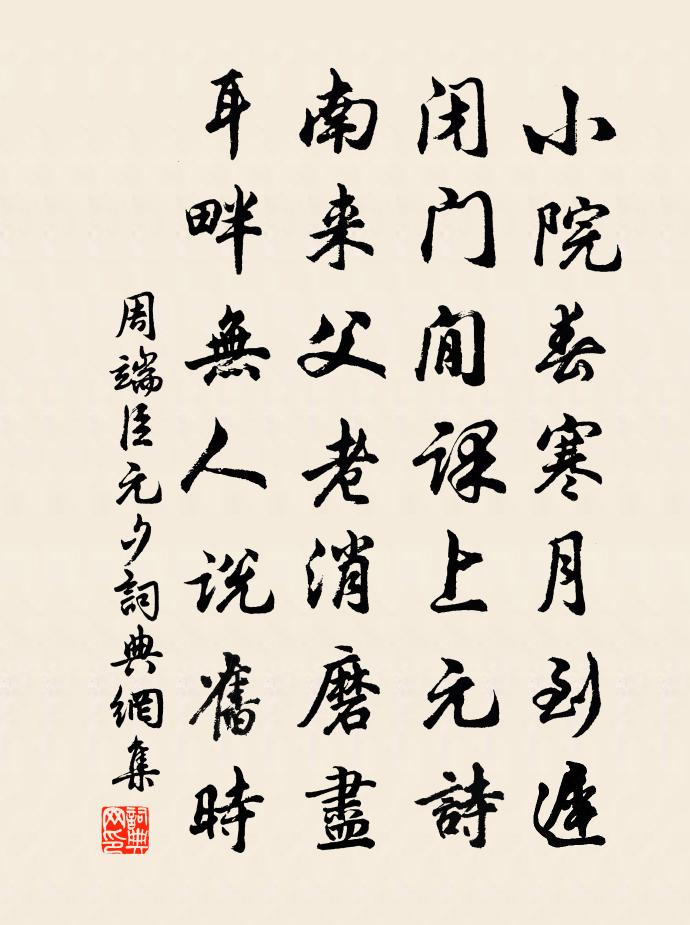 小院春寒月到遲
闭门閒课上元詩
南来父老消磨盡
耳畔無人说舊時
周端臣元夕詞典網集
詞典网印